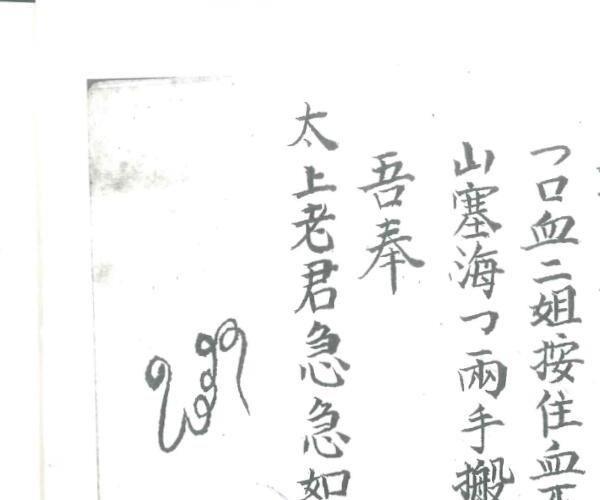 乛口血二姐按住血
山塞海乛兩手搬
吾奉
太上老君急急如